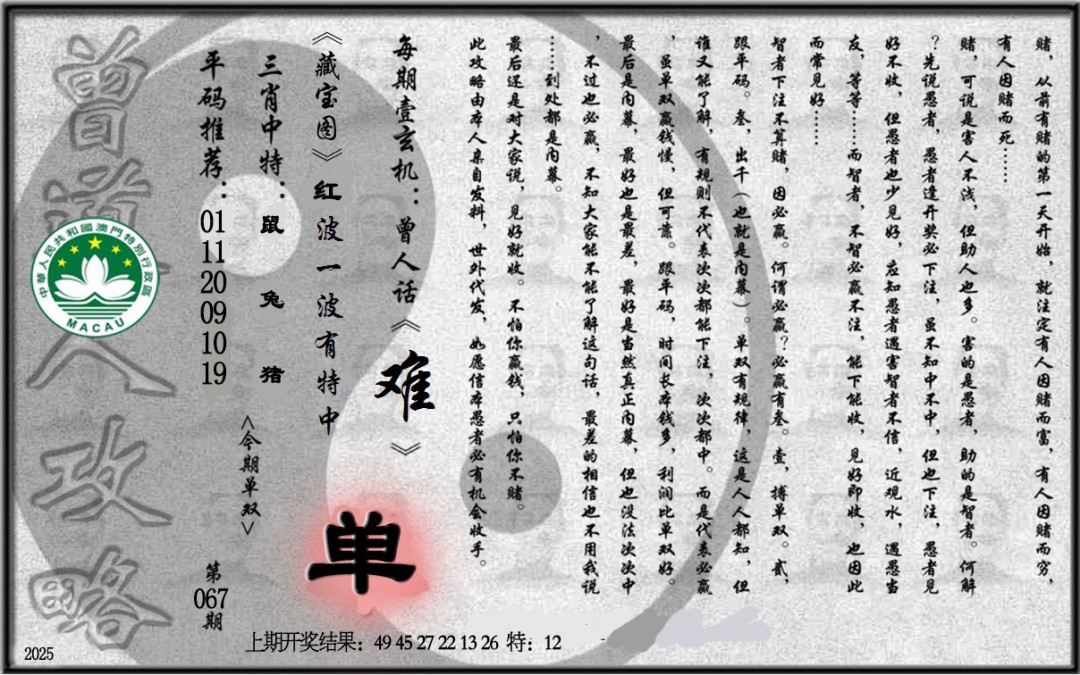 赌，从前有赌的第一天开始，就注定有人因赌而富，有人因赌而穷，
有人因赌而死……
赌，可说是害人不浅，但助人也多。害的是愚者，助的是智者。何解
？先说愚者，愚者逢开奖必下注，虽不知中不中，但也下注，愚者见
好不收，但愚者也少见好，应知愚者遇害智者不信，近观水，遇愚当
友，等等……而智者，不智必赢不注，能下能收，见好即收，也因此
而常见好……
智者下注不算赌，因必赢。何谓必赢？必赢有叁。壹，搏单双。贰，
跟平码。叁，出千（也就是内幕）。单双有规律，这是人人都知，但
谁又能了解，有规则不代表次次都能下注，次次都中。而是代表必赢
，虽单双赢钱慢，但可靠。跟平码，时间长本钱多，利润比单双好。
最后是内幕，最好也是最差，最好是当然真正内幕，但也没法次次中
，不过也必赢，不知大家能不能了解这句话，最差的相信也不用我说
……到处都是内幕。
最后还是对大家说，见好就收。不怕你赢钱，只怕你不赌。
此攻略由本人亲自发料，世外代发，如愿信本愚者必有机会收手。
每期壹玄机：曾人话《难》
《藏宝图》红波一波有特中
单
三肖中特：鼠 兔 猪
<今期单双>
平码推荐：01 11 20 09 10 19
第067期
曾道人攻略
中華人民共和國澳門特別行政區
MACAU
上期开奖结果：49 45 27 22 13 26 特：12
2025